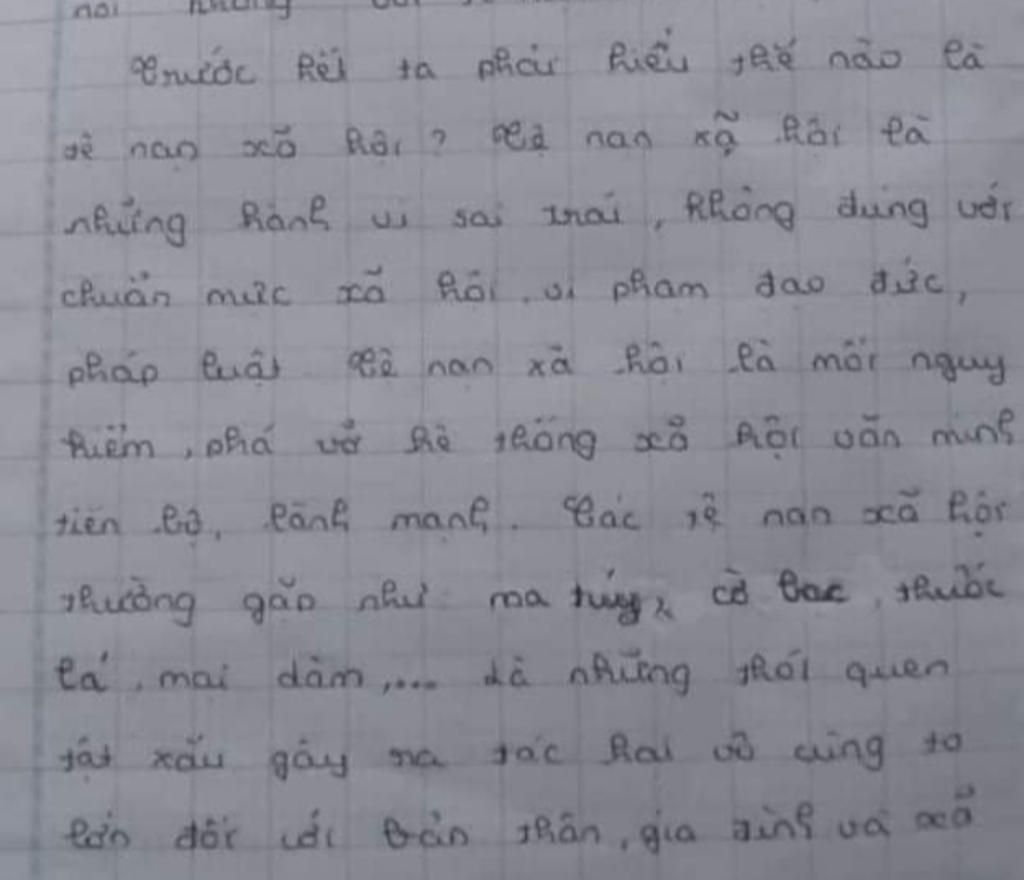 Trước hết ta phải hiểu thế nào là
tệ nạn xã hội? Tệ nạn xã hội là
những hành vi sai trái, không đúng với
chuẩn mực xã hội, vi phạm đạo đức,
pháp luật Tệ nạn xã hội là mối nguy
hiểm, phá vỡ hệ thống xã hội văn minh
tiến bộ, lành mạnh. Các tệ nạn xã hội
thường gặp như ma túy, cờ bạc, thuốc
lá, mại dâm,.... là những thói quen
tật xấu gây ra tác hại vô cùng to
lớn đối với bản thân, gia đình và xã